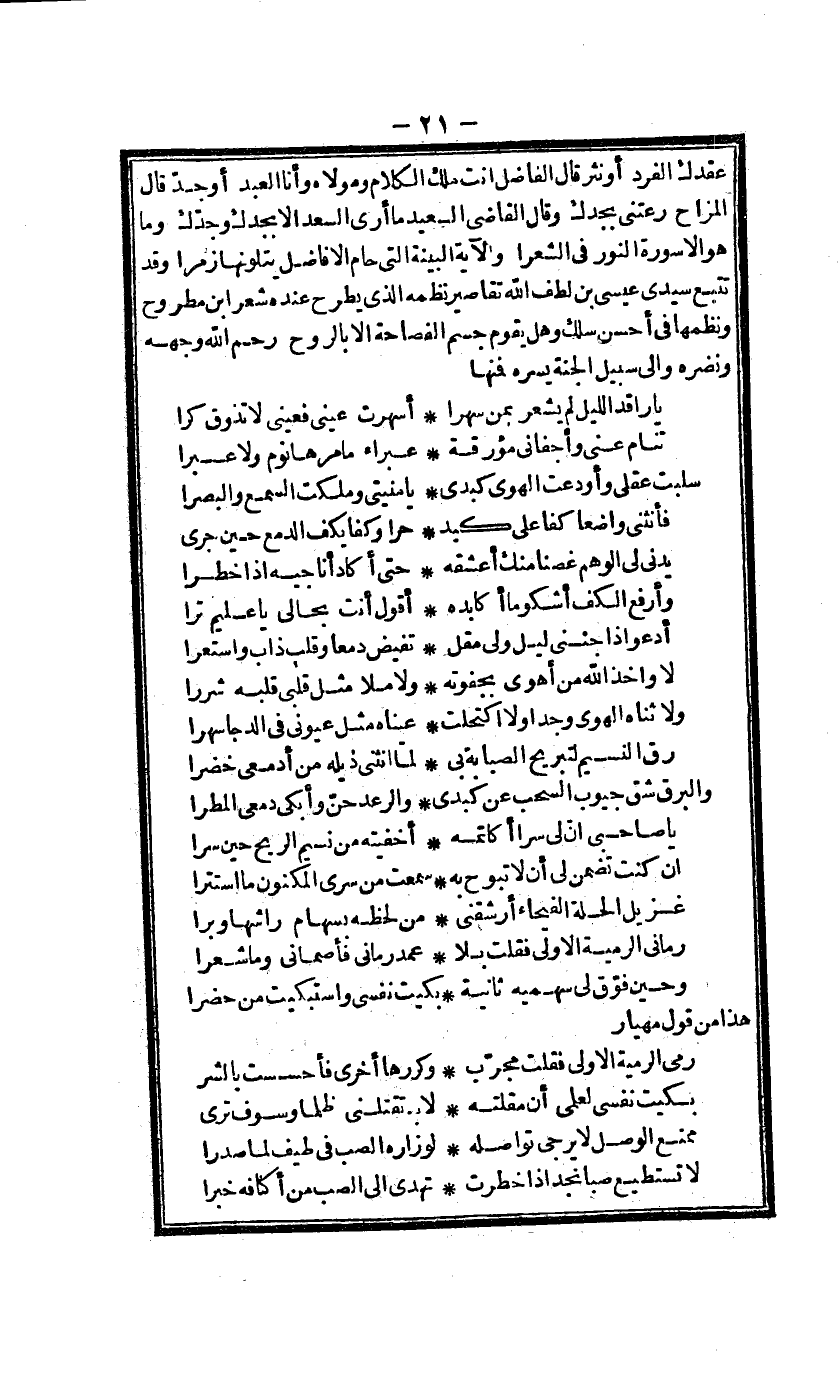 — ٢١ —
عقدك الفرد أونثر قال الفاضل انت ملك الكلام ومولاه وأنا العبد أوجدّ قال
المزاح رعتنى بجدك وقال القاضى السعيد ما أرى السعد الا بجدك وجدّك وما
هو الا سورة النور فى الشعرا والآية البينة التى حام الافاضل يتلونها زمرا وقد
تتبع سيدى عيسى بن لطف الله تقاصير نظمه الذى يطرح عنده شعر ابن مطروح
ونظمها فى أحسن سلك وهل يقوم جسم الفصاحة الا بالروح رحم الله وجهه
ونضره والى سبيل الجنة يسره فمنها
يا راقد الليل لم يشعر بمن سهرا * أسهرت عينى فعينى لا تذوق كرا
تنام عنى وأجفانى مؤرقة * عبراء مامرها نوم ولا عبرا
سلبت عقلى وأودعت الهوى كبدى * يا منيتى وملكت السمع والبصرا
فأنثنى واضعا كفا على كبد * حرا وكفا يكف الدمع حين جرى
يدنى لى الوهم غصنا منك أعشقه * حتى أكاد أناجيه اذا خطرا
وأرفع الكف أشكو ما أكابده * أقول أنت بحالى يا عليم ترا
أدعو اذا جننى ليل ولى مقل * تفيض دمعا وقلب ذاب واستعرا
لا واخذ الله من أهوى بجفوته * ولا ملا مثل قلبى قلبه شررا
ولا ثناه الهوى وجدا ولا اكتحلت * عيناه مثل عيونى فى الدجا سهرا
رق النسيم لتبريح الصبابة بى * لما انثنى ذيله من أدمعى خضرا
والبرق شق جيوب السحب عن كبدى * والرعد حنّ وأبكى دمعى المطرا
يا صاحبى انّ لى سرا أكاتمه * أخفيته من نسيم الريح حين سرا
ان كنت تضمن لى أن لا تبوح به * سمعت من سرى المكنون ما استترا
غزيل الحلة الفيحاء أرشقنى * من لحظه بسهام راشها وبرا
رمانى الرمية الاولى فقلت بلا * عمد رمانى فأصمانى وما شعرا
وحين فوّق لى سهميه ثانية * بكيت نفسى واستبكيت من حضرا
هذا من قول مهيار
رمى الرمية الاولى فقلت مجرّب * وكررها أخرى فأحسست بالشر
بكيت نفسى لعلمى أن مقلته * لابد تقتلنى ظلما وسوف ترى
ممنع الوصل لا يرجى تواصله * لو زاره الصب فى طيف لما صدرا
لا تستطيع صبا نجد اذا خطرت * تهدى الى الصب من أكنافه خبرا